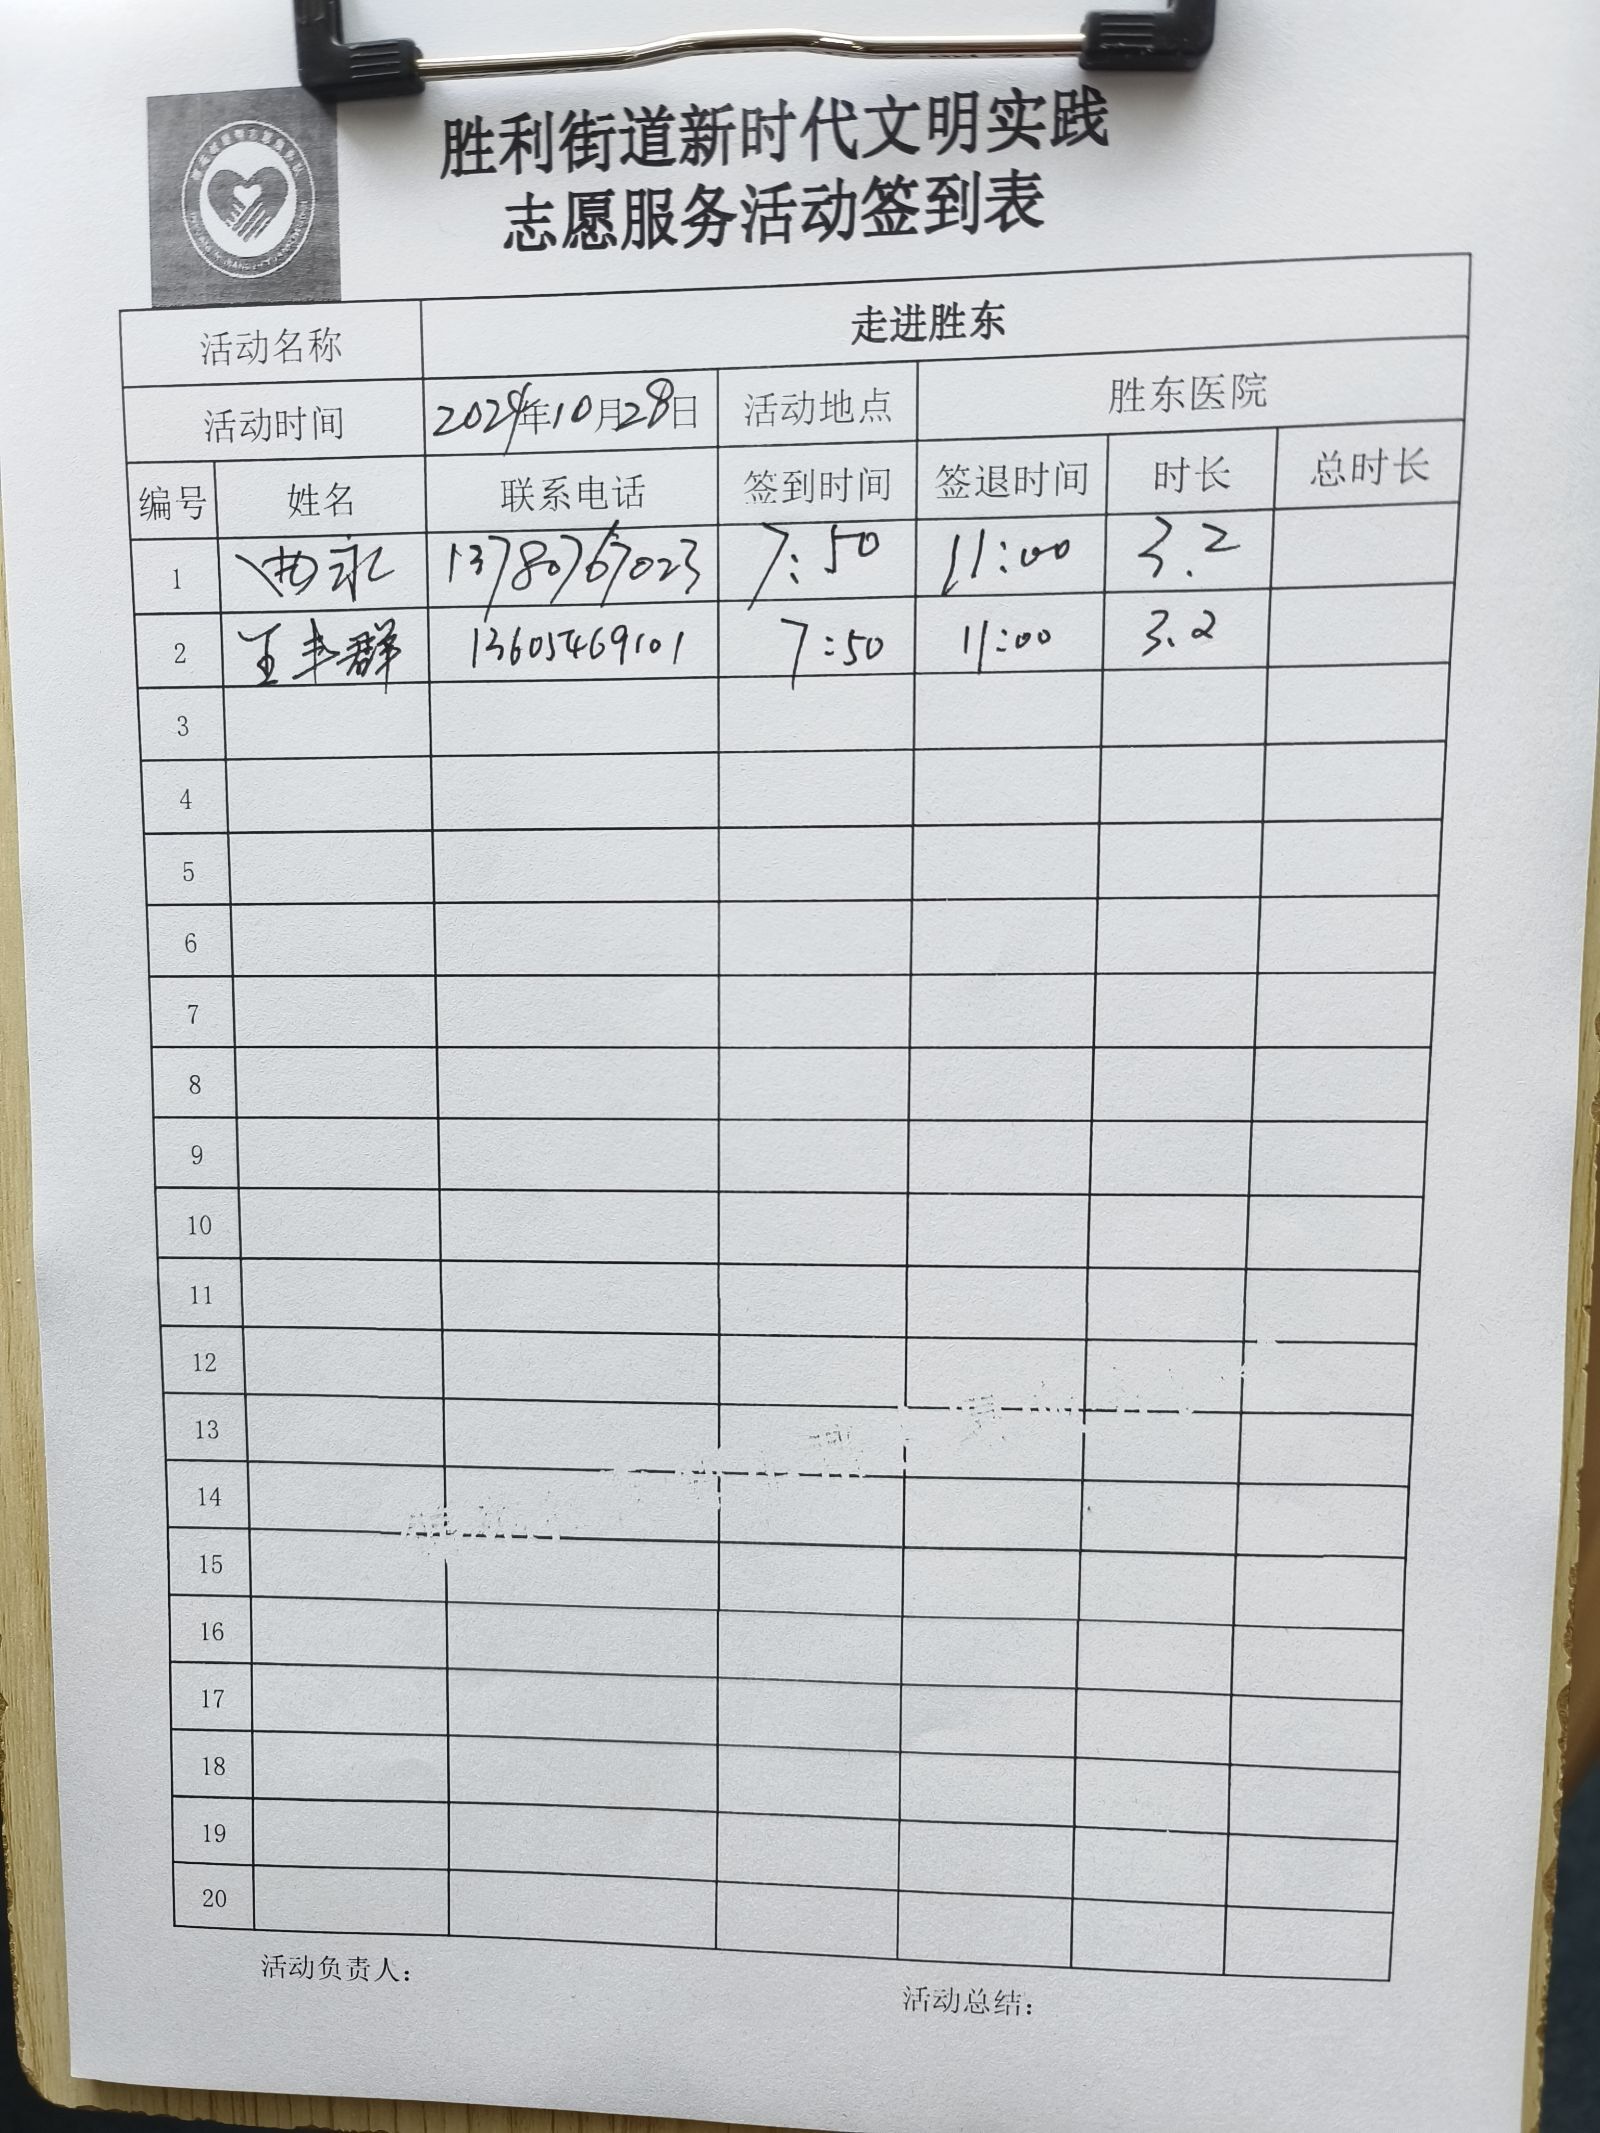 胜利街道新时代文明实践
志愿服务活动签到表
活动名称 走进胜东
活动时间 2024年10月28日 活动地点 胜东医院
编号 姓名 联系电话 签到时间 签退时间 时长 总时长
1 曲永 13780767023 7:50 11:00 3.2
2 王丰群 13605469101 7:50 11:00 3.2
3
4
5
6
7
8
9
10
11
12
13
14
15
16
17
18
19
20
活动负责人：
活动总结：